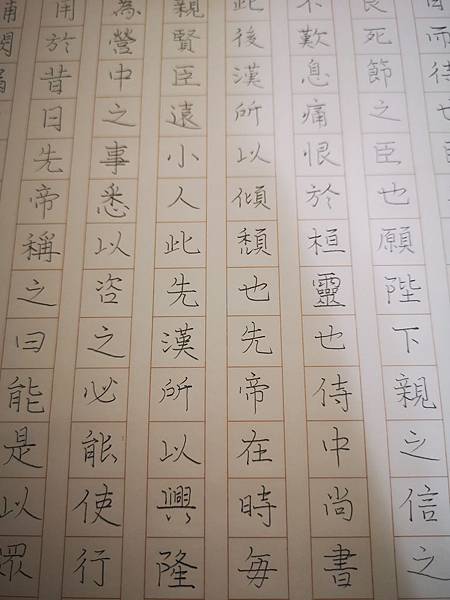 而待也
良死節之臣也願陛下親之信之
不歎息痛恨於桓靈也侍中尚書
此後漢所以傾頹也先帝在時每
親賢臣遠小人此先漢所以興隆
為營中之事悉以咨之必能使行
用於昔日先帝稱之曰能是以眾
補闕漏